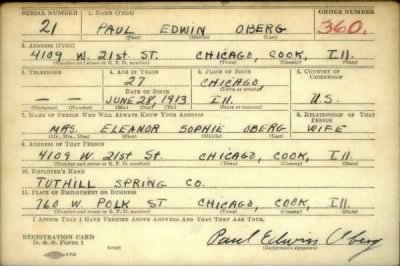 SERIAL NUMBER 1. NAME (Print) ORDER NUMBER
21 PAUL EDWIN OBERG 360.
(First) (Middle) (Last)
2. ADDRESS (Print)
4109 W. 21st ST. CHICAGO, COOK, Ill.
(Number and street or R. F. D. number) (Town) (County) (State)
3. TELEPHONE 4. AGE IN YEARS 5. PLACE OF BIRTH 6. COUNTRY OF CITIZENSHIP
27 CHICAGO
DATE OF BIRTH (Town or county)
— — JUNE 28, 1913 Ill. U.S.
(Exchange) (Number) (Mo.) (Day) (Yr.) (State or country)
7. NAME OF PERSON WHO WILL ALWAYS KNOW YOUR ADDRESS 8. RELATIONSHIP OF THAT PERSON
MRS. ELEANOR SOPHIE OBERG WIFE
(Mr., Mrs., Miss) (First) (Middle) (Last)
9. ADDRESS OF THAT PERSON
4109 W. 21ST ST CHICAGO, COOK, Ill.
(Number and street or R. F. D. number) (Town) (County) (State)
10. EMPLOYER'S NAME
TUTHILL SPRING CO.
11. PLACE OF EMPLOYMENT OR BUSINESS
760 W. POLK ST. CHICAGO, COOK, Ill.
(Number and street or R. F. D. number) (Town) (County) (State)
I AFFIRM THAT I HAVE VERIFIED ABOVE ANSWERS AND THAT THEY ARE TRUE.
REGISTRATION CARD
D. S. S. Form 1 Paul Edwin Oberg
(Registrant's signature)